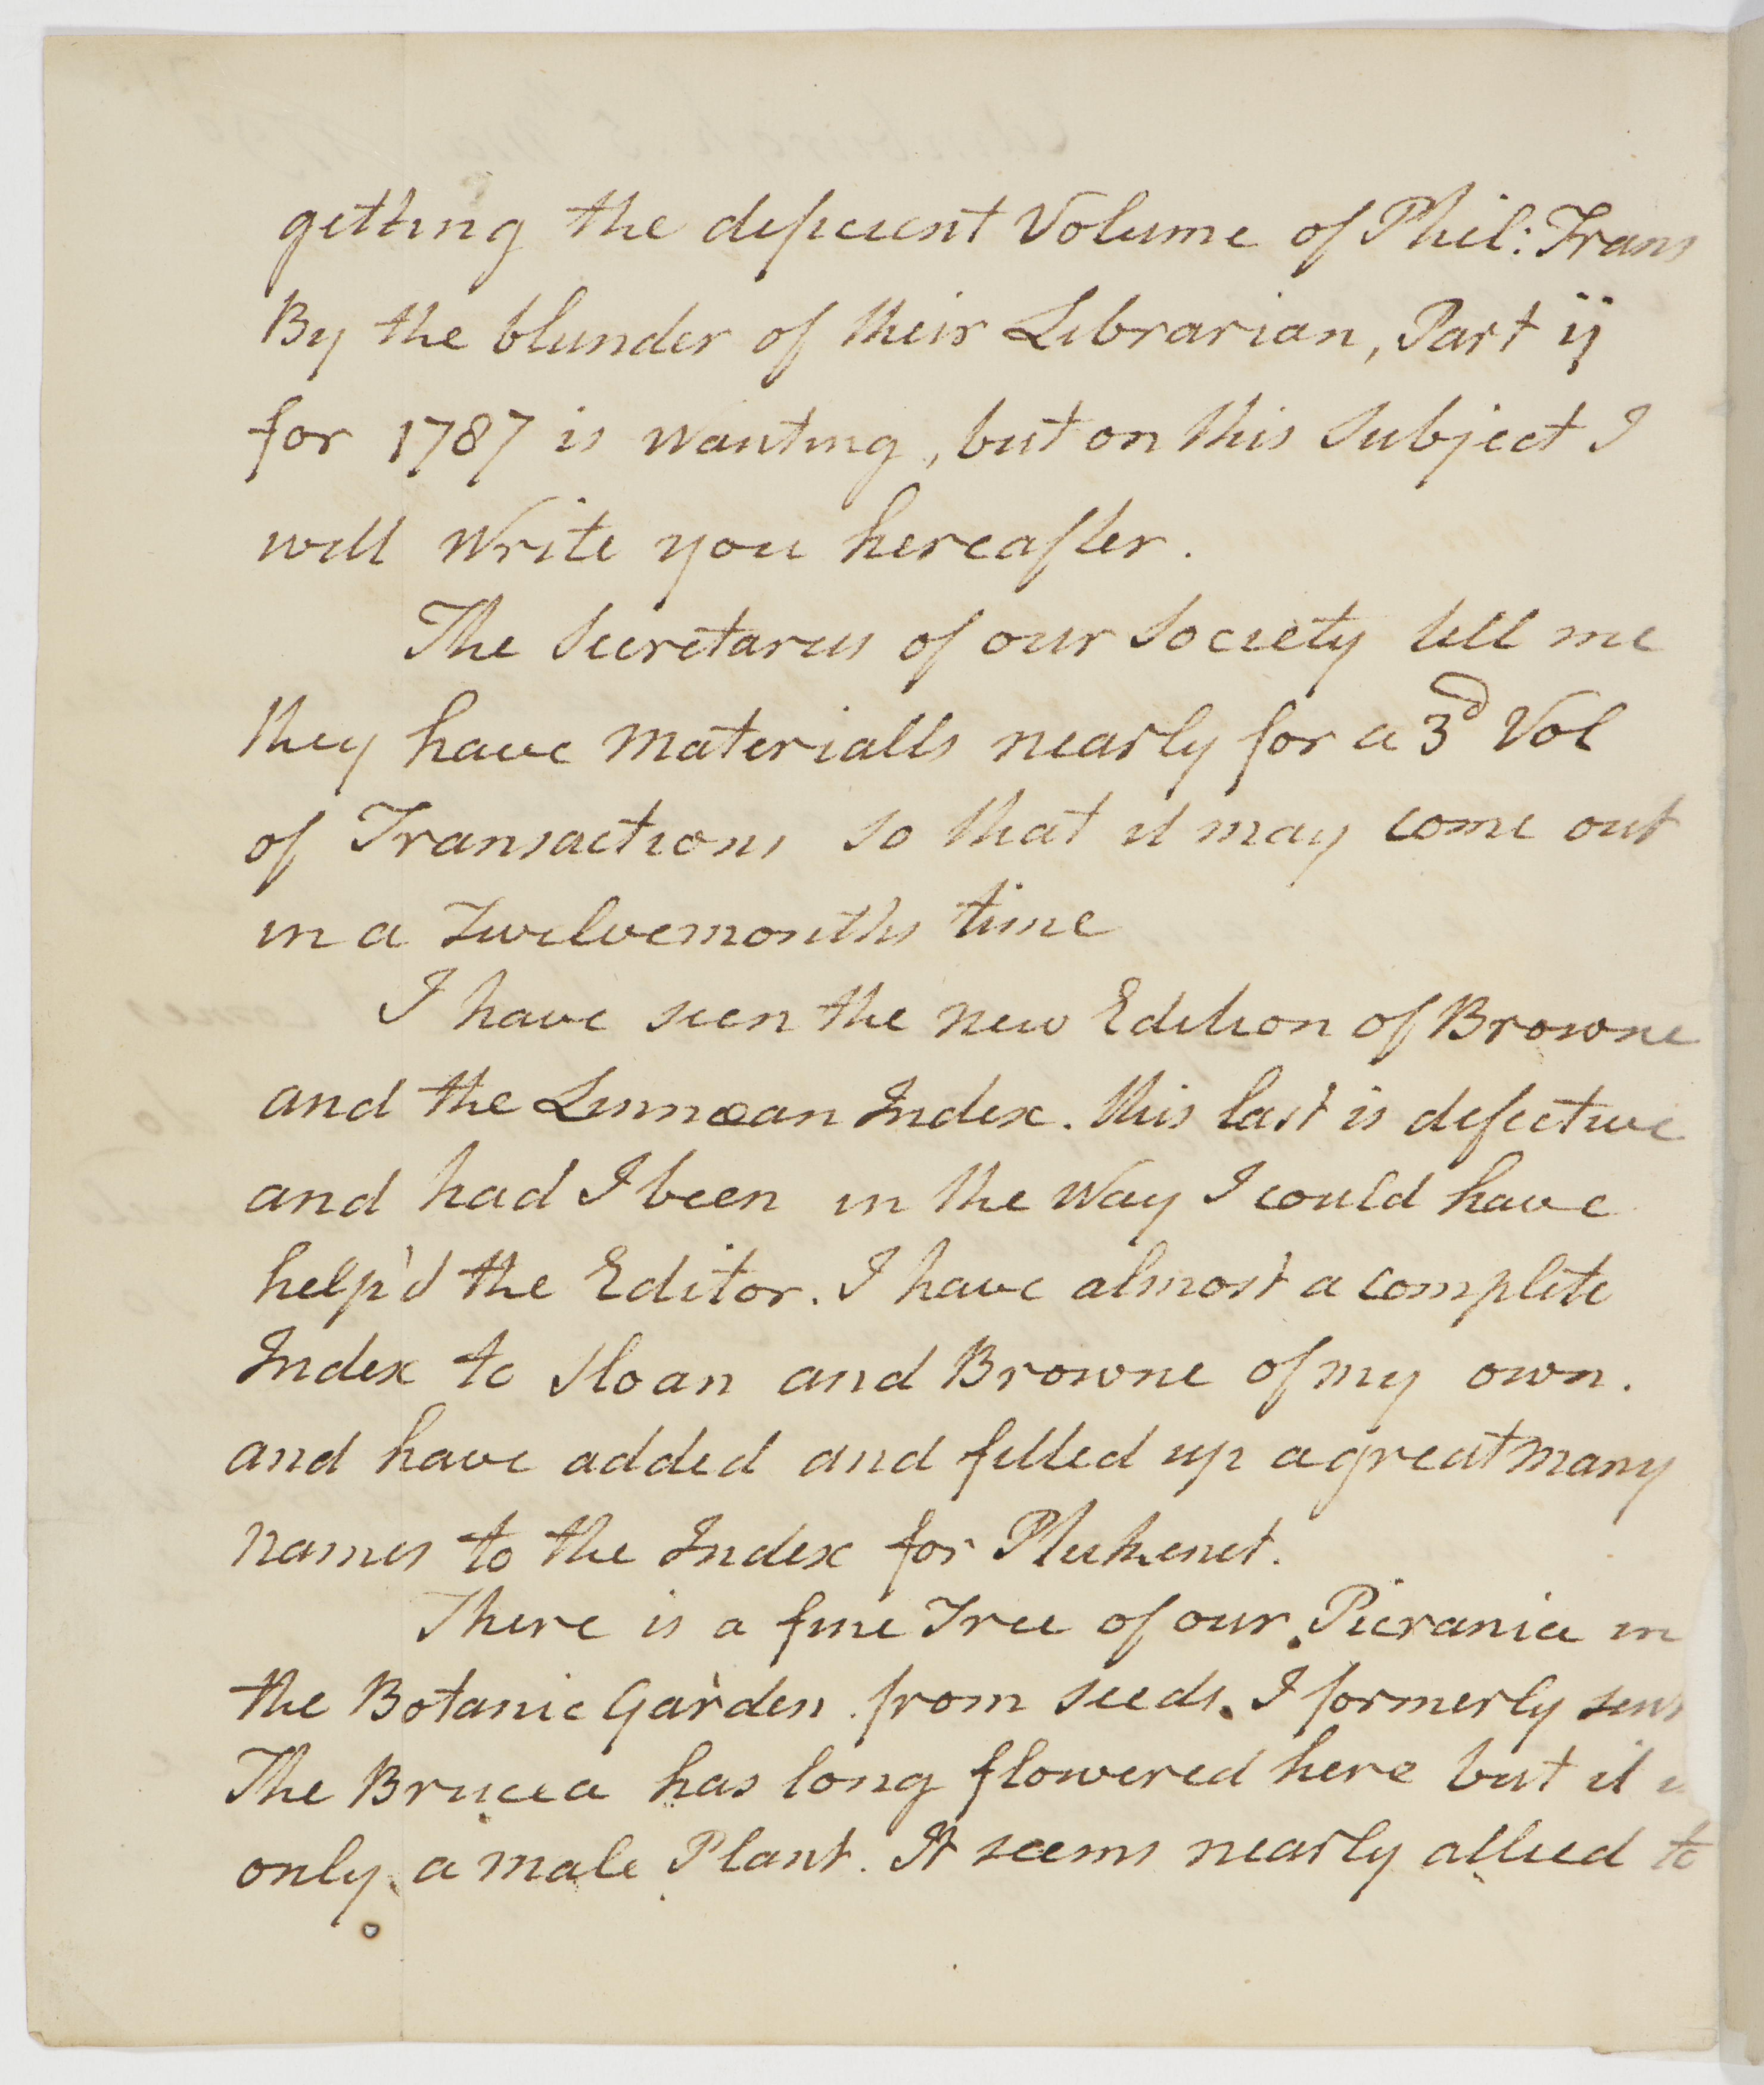 getting the deficient Volume of Phil: Trans
By the blunder of their Librarian, Part ij
for 1787 is wanting, but on this Subject I
will write you hereafter.
The Secretaries of our Society tell me
they have materialls nearly for a 3d Vol
of Transactions so that it may come out
in a Twelvemonths time
I have seen the new Edition of Browne
and the Linnæan Index. this last is defective
and had I been in the way I could have
help'd the Editor. I have almost a complete
Index to Sloan and Browne of my own.
and have added and filled up a great many
names to the Index for Plukenet.
There is a fine Tree of our Picrania in
the Botanic Garden from seeds I formerly sent
The Brucea has long flowered here but it
only a male Plant. It seems nearly allied to